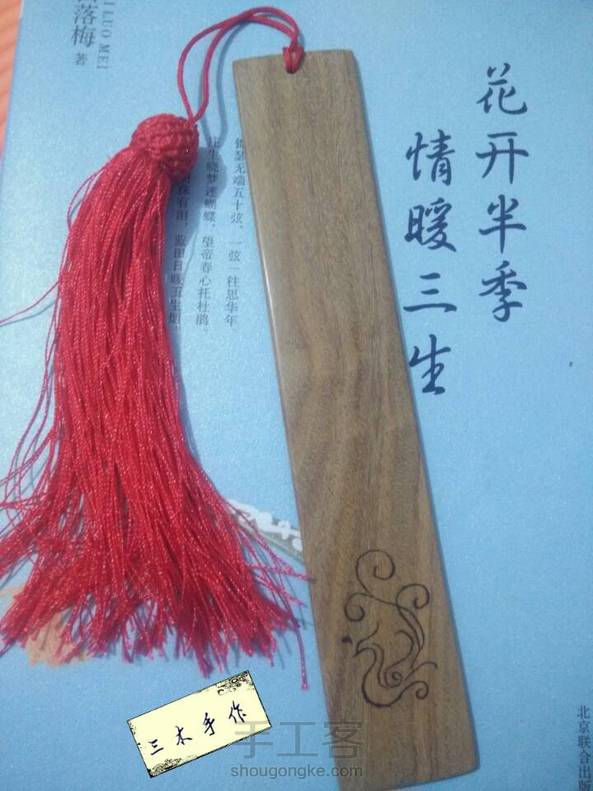 花开半季
情暖三生
落梅 著
ILUO MEI
锦瑟无端五十弦，一弦一柱思华年
生晓梦迷蝴蝶，望帝春心托杜鹃。
珠有泪，蓝田日暖玉生烟
北京联合出版
三木手作
手工客
shougongke.com